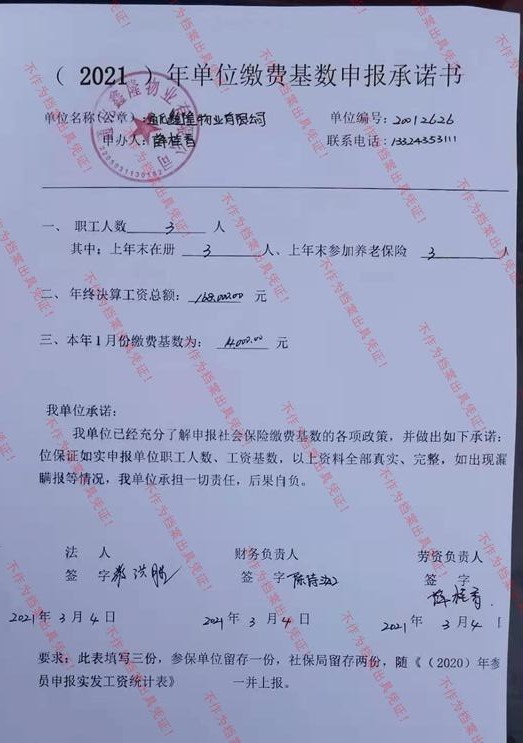 （ 2021 ）年单位缴费基数申报承诺书
单位名称（公章）：通化鑫隆物业有限公司 单位编号：20012626
申办人：薛桂香 联系电话：13324353111
一、 职工人数 3 人
其中：上年末在册 3 人、上年末参加养老保险 3 人
二、年终决算工资总额： 168,000.00 元
三、本年1月份缴费基数为： 14,000.00 元
我单位承诺：
我单位已经充分了解申报社会保险缴费基数的各项政策，并做出如下承诺：
位保证如实申报单位职工人数、工资基数，以上资料全部真实、完整，如出现漏
瞒报等情况，我单位承担一切责任，后果自负。
法 人 财务负责人 劳资负责人
签 字 签 字 签 字
薛桂香
2021年 3月 4日 2021年 3月 4日 2021年 3月 4日
要求：此表填写三份，参保单位留存一份，社保局留存两份，随《（2020）年参
员申报实发工资统计表》 一并上报。
不作为档案出具凭证！